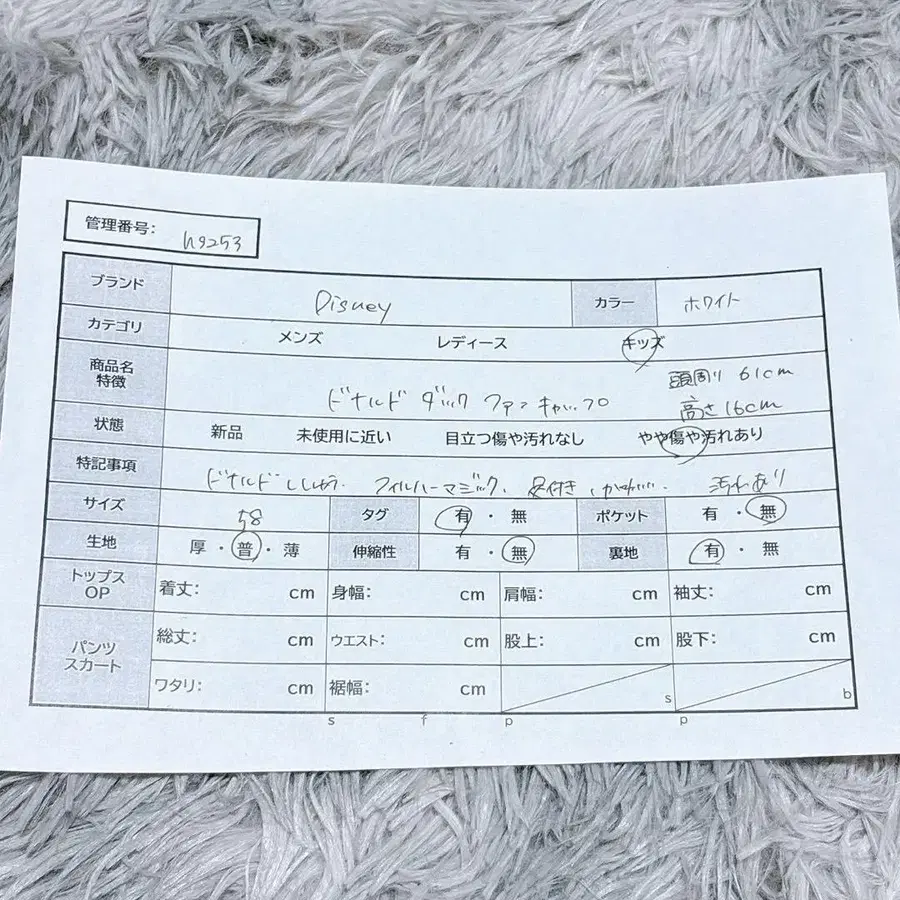 管理番号： h9253
ブランド Disney カラー ホワイト
カテゴリ メンズ レディース キッズ
商品名 特徴 ドナルド ダック ファン キャップ 頭周り 61cm
高さ 16cm
状態 新品 未使用に近い 目立つ傷や汚れなし やや傷や汚れあり
特記事項 ドナルド ししゅう、フィルハーマジック、付き、汚れあり
サイズ 58 タグ 有・無 ポケット 有・無
生地 厚・普・薄 伸縮性 有・無 裏地 有・無
トップス OP 着丈： cm 身幅： cm 肩幅： cm 袖丈： cm
パンツ スカート 総丈： cm ウエスト： cm 股上： cm 股下： cm
ワタリ： cm 裾幅： cm s b
s f p p